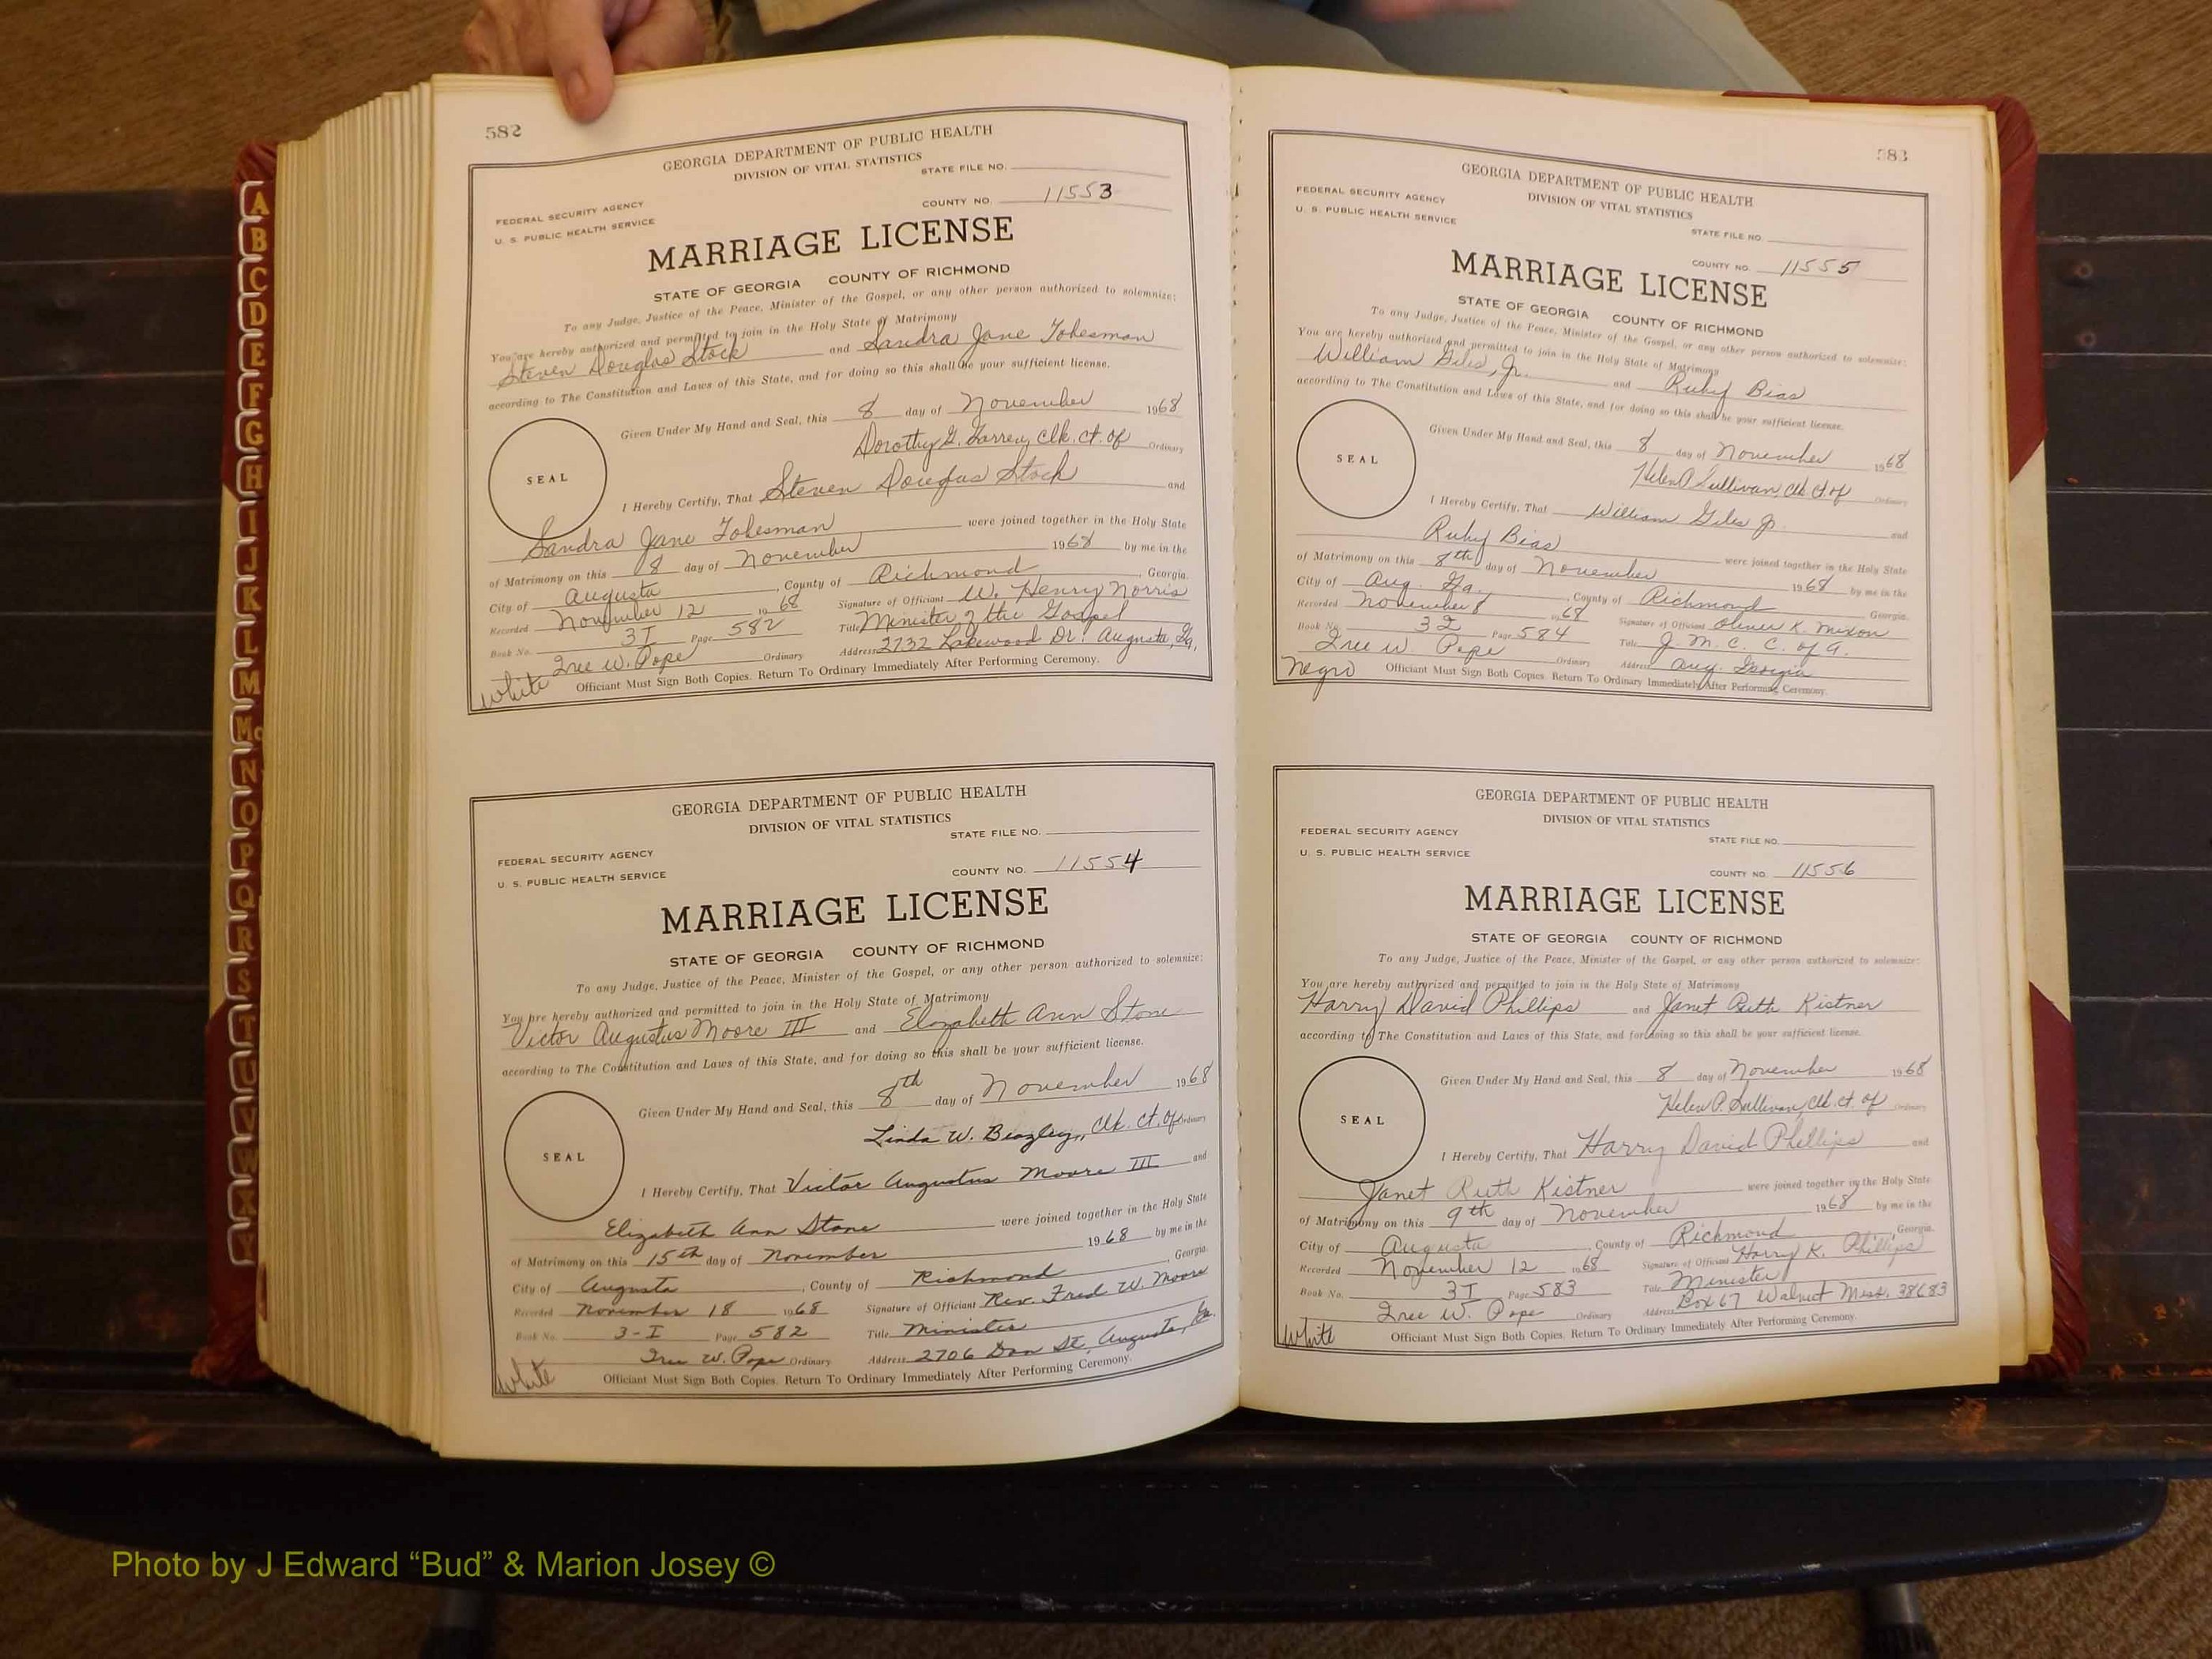 A
B
C
D
E
F
G
H
I
J
K
L
M
Mc
N
O
P
Q
R
S
T
U
V
W
X
Y
582
GEORGIA DEPARTMENT OF PUBLIC HEALTH
DIVISION OF VITAL STATISTICS
STATE FILE NO.
FEDERAL SECURITY AGENCY
COUNTY NO. 11553
U. S. PUBLIC HEALTH SERVICE
MARRIAGE LICENSE
STATE OF GEORGIA COUNTY OF RICHMOND
To any Judge, Justice of the Peace, Minister of the Gospel, or any other person authorized to solemnize:
You are hereby authorized and permitted to join in the Holy State of Matrimony
Steven Douglas Stock and Sandra Jane
according to The Constitution and Laws of this State, and for doing so this shall be your sufficient license.
Given Under My Hand and Seal, this 8 day of November 1968
Dorothy G. Clk. Ct. of Ordinary
SEAL
I Hereby Certify, That Steven Douglas Stock and
Sandra Jane were joined together in the Holy State
of Matrimony on this 8 day of November 1968 by me in the
City of Augusta, County of Richmond, Georgia.
Recorded November 12 1968 Signature of Officiant W. Henry Norris
Book No. 3I Page 582 Title Minister of the Gospel
W. Pope Ordinary Address 2732 Lakewood Dr. Augusta, Ga.
White Officiant Must Sign Both Copies. Return To Ordinary Immediately After Performing Ceremony.
GEORGIA DEPARTMENT OF PUBLIC HEALTH
DIVISION OF VITAL STATISTICS
STATE FILE NO.
FEDERAL SECURITY AGENCY
COUNTY NO. 11554
U. S. PUBLIC HEALTH SERVICE
MARRIAGE LICENSE
STATE OF GEORGIA COUNTY OF RICHMOND
To any Judge, Justice of the Peace, Minister of the Gospel, or any other person authorized to solemnize:
You are hereby authorized and permitted to join in the Holy State of Matrimony
Victor Augustus Moore III and Elizabeth Ann Stone
according to The Constitution and Laws of this State, and for doing so this shall be your sufficient license.
Given Under My Hand and Seal, this 8th day of November 1968
Linda W. Beazley, Clk. Ct. Of Ordinary
SEAL
I Hereby Certify, That Victor Augustus Moore III and
Elizabeth Ann Stone were joined together in the Holy State
of Matrimony on this 15th day of November 1968 by me in the
City of Augusta, County of Richmond, Georgia.
Recorded November 18 1968 Signature of Officiant Rev. Fred W. Moore
Book No. 3-I Page 582 Title Minister
W. Pope Ordinary Address 2706 Dan St, Augusta, Ga.
White Officiant Must Sign Both Copies. Return To Ordinary Immediately After Performing Ceremony.
583
GEORGIA DEPARTMENT OF PUBLIC HEALTH
DIVISION OF VITAL STATISTICS
FEDERAL SECURITY AGENCY
U. S. PUBLIC HEALTH SERVICE
STATE FILE NO.
COUNTY NO. 11555
MARRIAGE LICENSE
STATE OF GEORGIA COUNTY OF RICHMOND
To any Judge, Justice of the Peace, Minister of the Gospel, or any other person authorized to solemnize:
You are hereby authorized and permitted to join in the Holy State of Matrimony
William Giles, Jr. and Ruby Bias
according to The Constitution and Laws of this State, and for doing so this shall be your sufficient license.
Given Under My Hand and Seal, this 8 day of November 1968
Helen P Sullivan, Clk Ct of Ordinary
SEAL
I Hereby Certify, That William Giles Jr. and
Ruby Bias were joined together in the Holy State
of Matrimony on this 8th day of November 1968 by me in the
City of Aug. Ga., County of Richmond Georgia.
Recorded November 8 1968 Signature of Officiant Oliver K. Mixon
Book No. 3I Page 584 Title J. M. C. C. of A.
W. Pope Ordinary Address Aug. Georgia
Negro Officiant Must Sign Both Copies. Return To Ordinary Immediately After Performing Ceremony.
GEORGIA DEPARTMENT OF PUBLIC HEALTH
DIVISION OF VITAL STATISTICS
FEDERAL SECURITY AGENCY
STATE FILE NO.
U. S. PUBLIC HEALTH SERVICE
COUNTY NO. 11556
MARRIAGE LICENSE
STATE OF GEORGIA COUNTY OF RICHMOND
To any Judge, Justice of the Peace, Minister of the Gospel, or any other person authorized to solemnize:
You are hereby authorized and permitted to join in the Holy State of Matrimony
Harry David Phillips and Janet Ruth Kistner
according to The Constitution and Laws of this State, and for doing so this shall be your sufficient license.
Given Under My Hand and Seal, this 8 day of November 1968
Helen P. Sullivan, Clk. ct. of Ordinary
SEAL
I Hereby Certify, That Harry David Phillips and
Janet Ruth Kistner were joined together in the Holy State
of Matrimony on this 9th day of November 1968 by me in the
City of Augusta, County of Richmond Georgia.
Recorded November 12 1968 Signature of Officiant Harry K. Phillips
Book No. 3I Page 583 Title Minister
W. Pope Ordinary Address Box 67 Walnut Miss. 38683
White Officiant Must Sign Both Copies. Return To Ordinary Immediately After Performing Ceremony.
Photo by J Edward “Bud” & Marion Josey ©